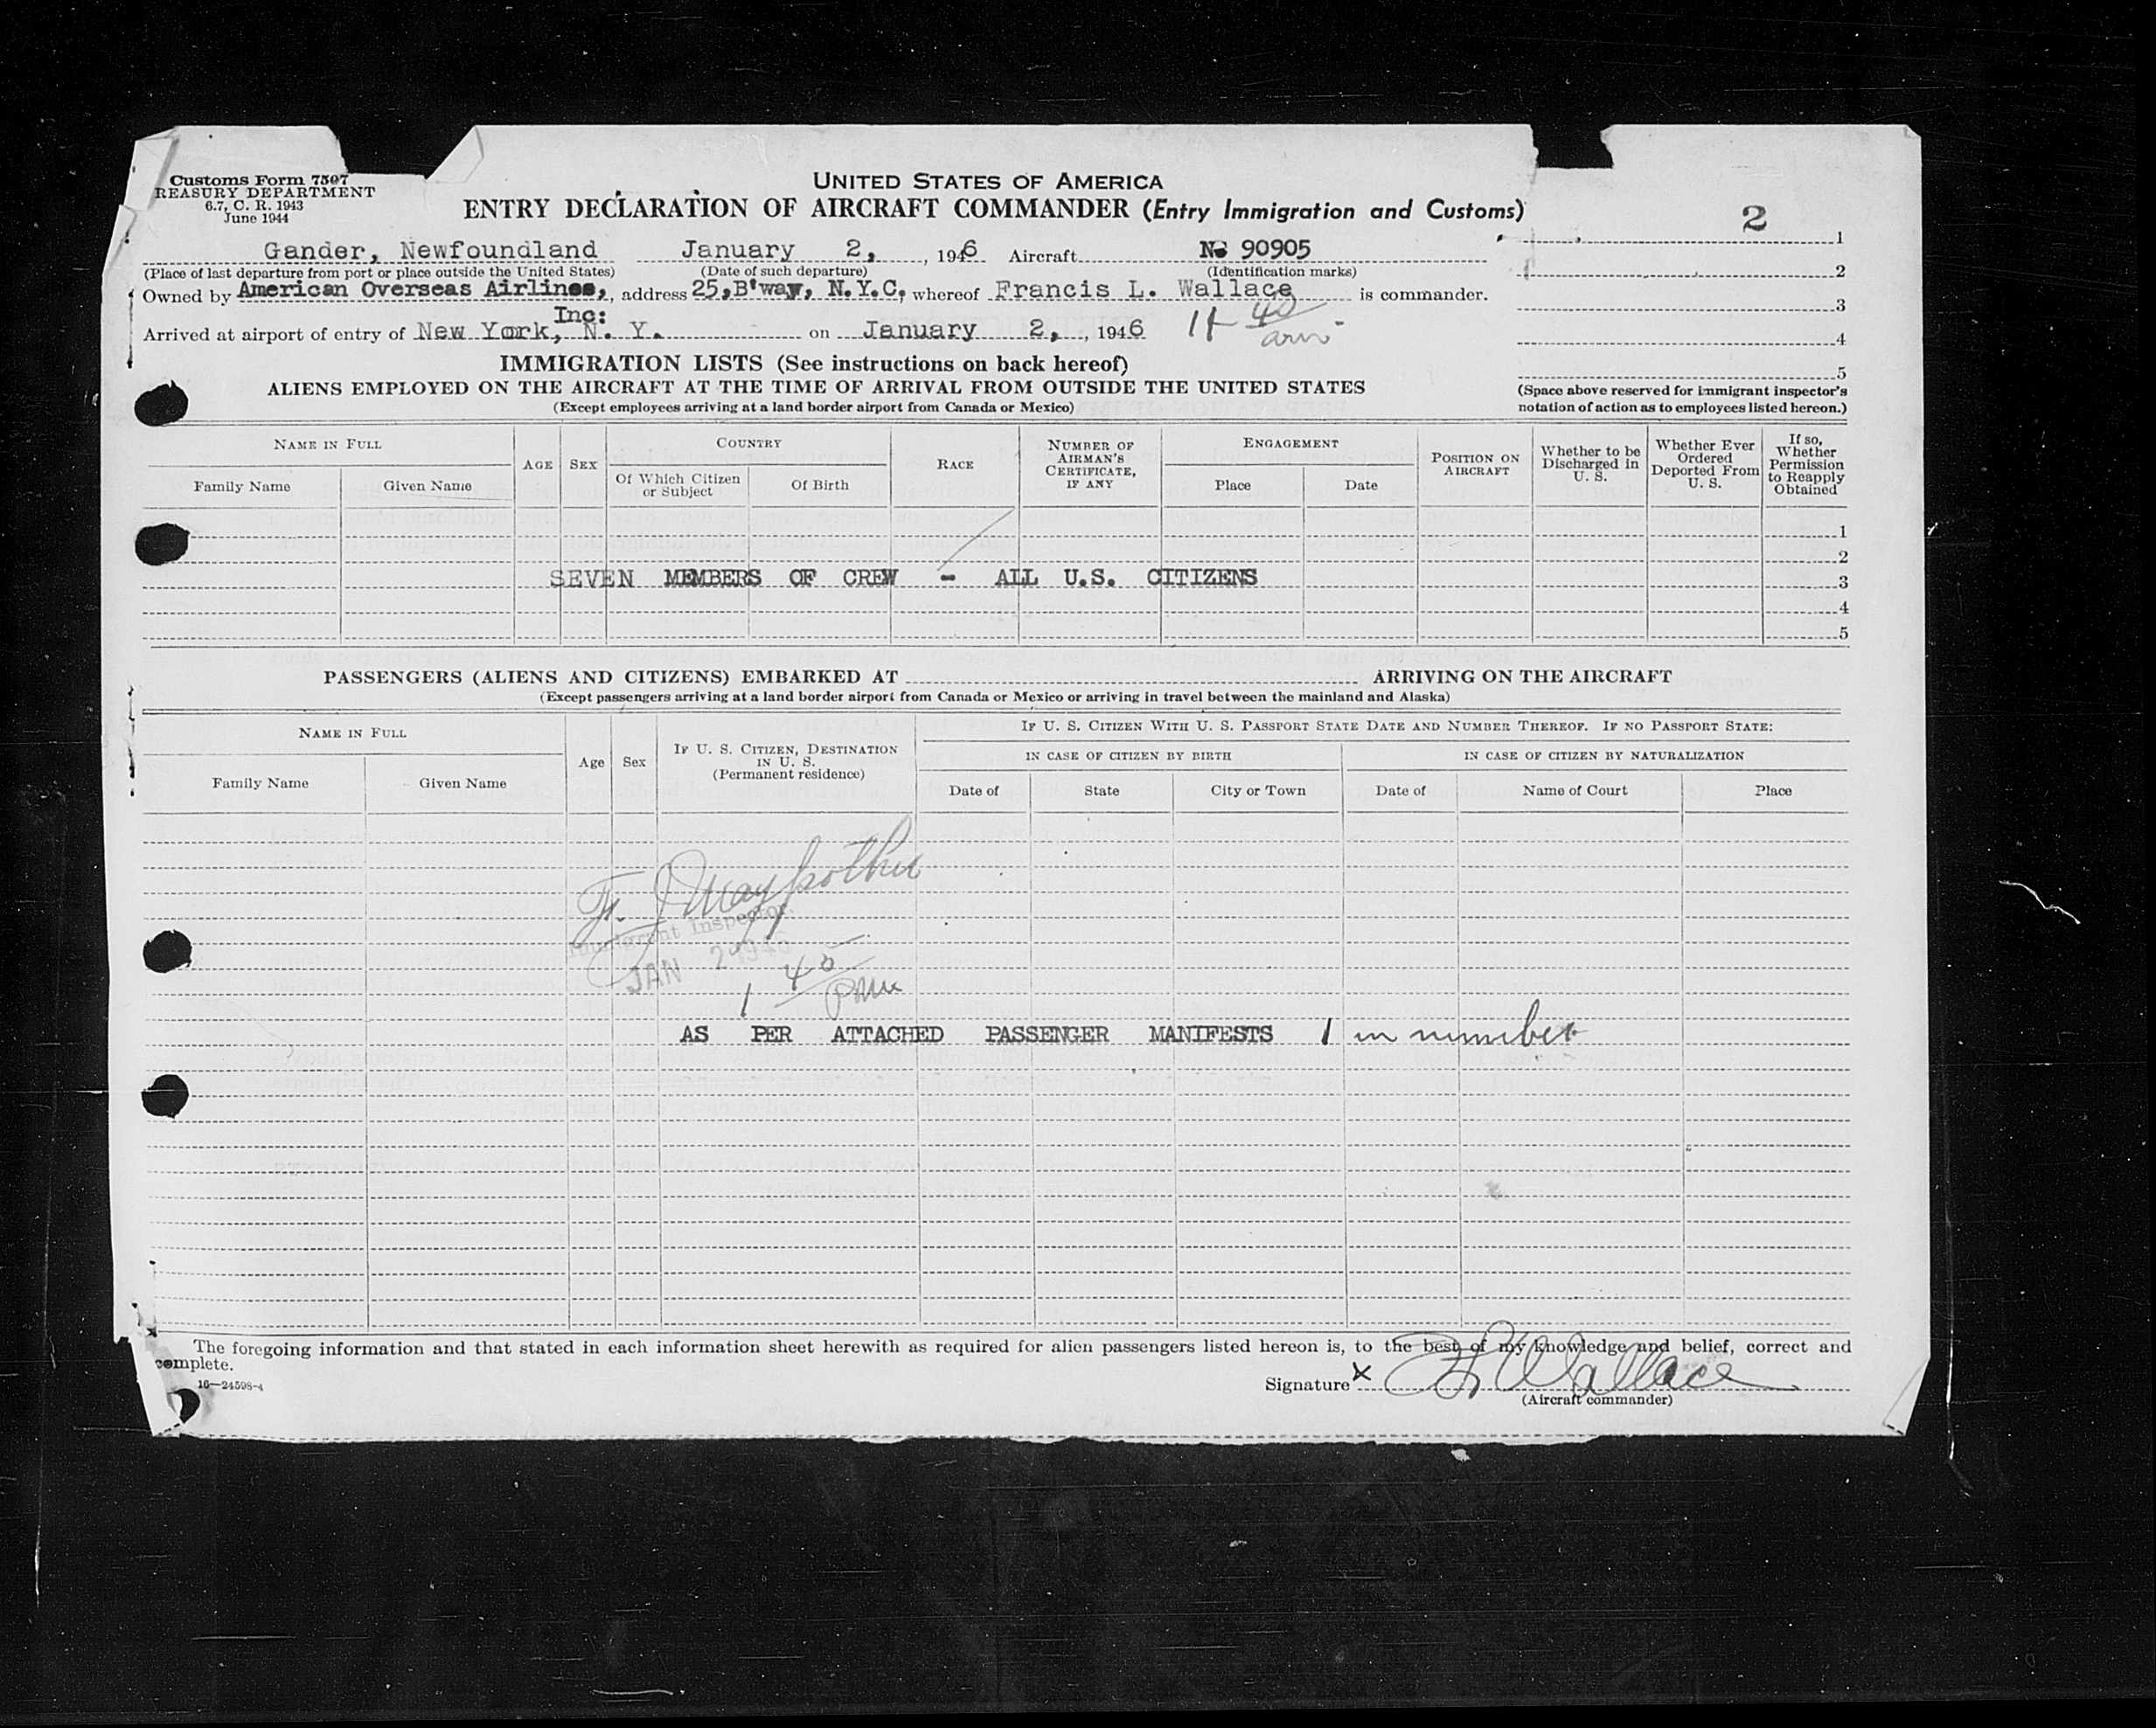 Customs Form 7507
REASURY DEPARTMENT
6.7, C. R. 1943
June 1944
UNITED STATES OF AMERICA
ENTRY DECLARATION OF AIRCRAFT COMMANDER (Entry Immigration and Customs)
2
Gander, Newfoundland January 2, , 1946 Aircraft 90905
(Place of last departure from port or place outside the United States) (Date of such departure) (Identification marks)
Owned by American Overseas Airlines, , address 25,B'way, N.Y.C, whereof Francis L. Wallace is commander.
Inc:
Arrived at airport of entry of New York, N. Y. on January 2, , 1946
1
2
3
4
5
(Space above reserved for immigrant inspector's
notation of action as to employees listed hereon.)
IMMIGRATION LISTS (See instructions on back hereof)
ALIENS EMPLOYED ON THE AIRCRAFT AT THE TIME OF ARRIVAL FROM OUTSIDE THE UNITED STATES
(Except employees arriving at a land border airport from Canada or Mexico)
NAME IN FULL
Family Name
Given Name
AGE
SEX
COUNTRY
Of Which Citizen
or Subject
Of Birth
RACE
NUMBER OF
AIRMAN'S
CERTIFICATE,
IF ANY
ENGAGEMENT
Place
Date
POSITION ON
AIRCRAFT
Whether to be
Discharged in
U. S.
Whether Ever
Ordered
Deported From
U. S.
If so,
Whether
Permission
to Reapply
Obtained
1
2
SEVEN MEMBERS OF CREW - ALL U.S. CITIZENS 3
4
5
PASSENGERS (ALIENS AND CITIZENS) EMBARKED AT ARRIVING ON THE AIRCRAFT
(Except passengers arriving at a land border airport from Canada or Mexico or arriving in travel between the mainland and Alaska)
NAME IN FULL
Family Name
Given Name
Age
Sex
IF U. S. CITIZEN, DESTINATION
IN U. S.
(Permanent residence)
IF U. S. CITIZEN WITH U. S. PASSPORT STATE DATE AND NUMBER THEREOF. IF NO PASSPORT STATE:
IN CASE OF CITIZEN BY BIRTH
IN CASE OF CITIZEN BY NATURALIZATION
Date of
State
City or Town
Date of
Name of Court
Place
Immigrant Inspector
JAN 2 1946
1 40 pm
AS PER ATTACHED PASSENGER MANIFESTS 1 in number
The foregoing information and that stated in each information sheet herewith as required for alien passengers listed hereon is, to the best of my knowledge and belief, correct and
complete.
16—24598-4
Signature x F L Wallace
(Aircraft commander)